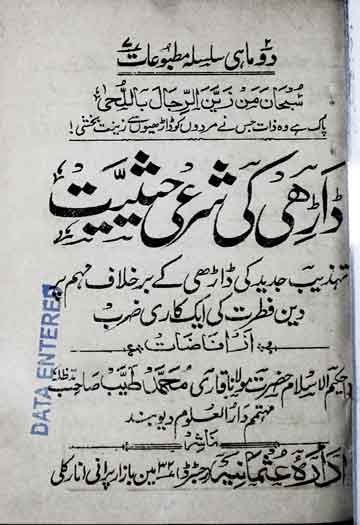 دو ماہی سلسلہ مطبوعات ۷
سُبْحَانَ مَنْ زَيَّنَ الرِّجَالَ بِاللُّحیٰ
پاک ہے وہ ذات جس نے مردوں کو داڑھیوں سے زینت بخشی!
ڈاڑھی کی شرعی حیثیت
تہذیب جدید کی ڈاڑھی کے برخلاف مہم پر
دین فطرت کی ایک کاری ضرب
از افاضات
حکیم الاسلام حضرت مولانا قاری محمد طیب صاحب مدظلہ
مہتمم دارالعلوم دیوبند
ناشر
ادارۂ عثمانیہ رجسٹرڈ ۳۲ مین بازار پرانی انارکلی
DATA ENTERED